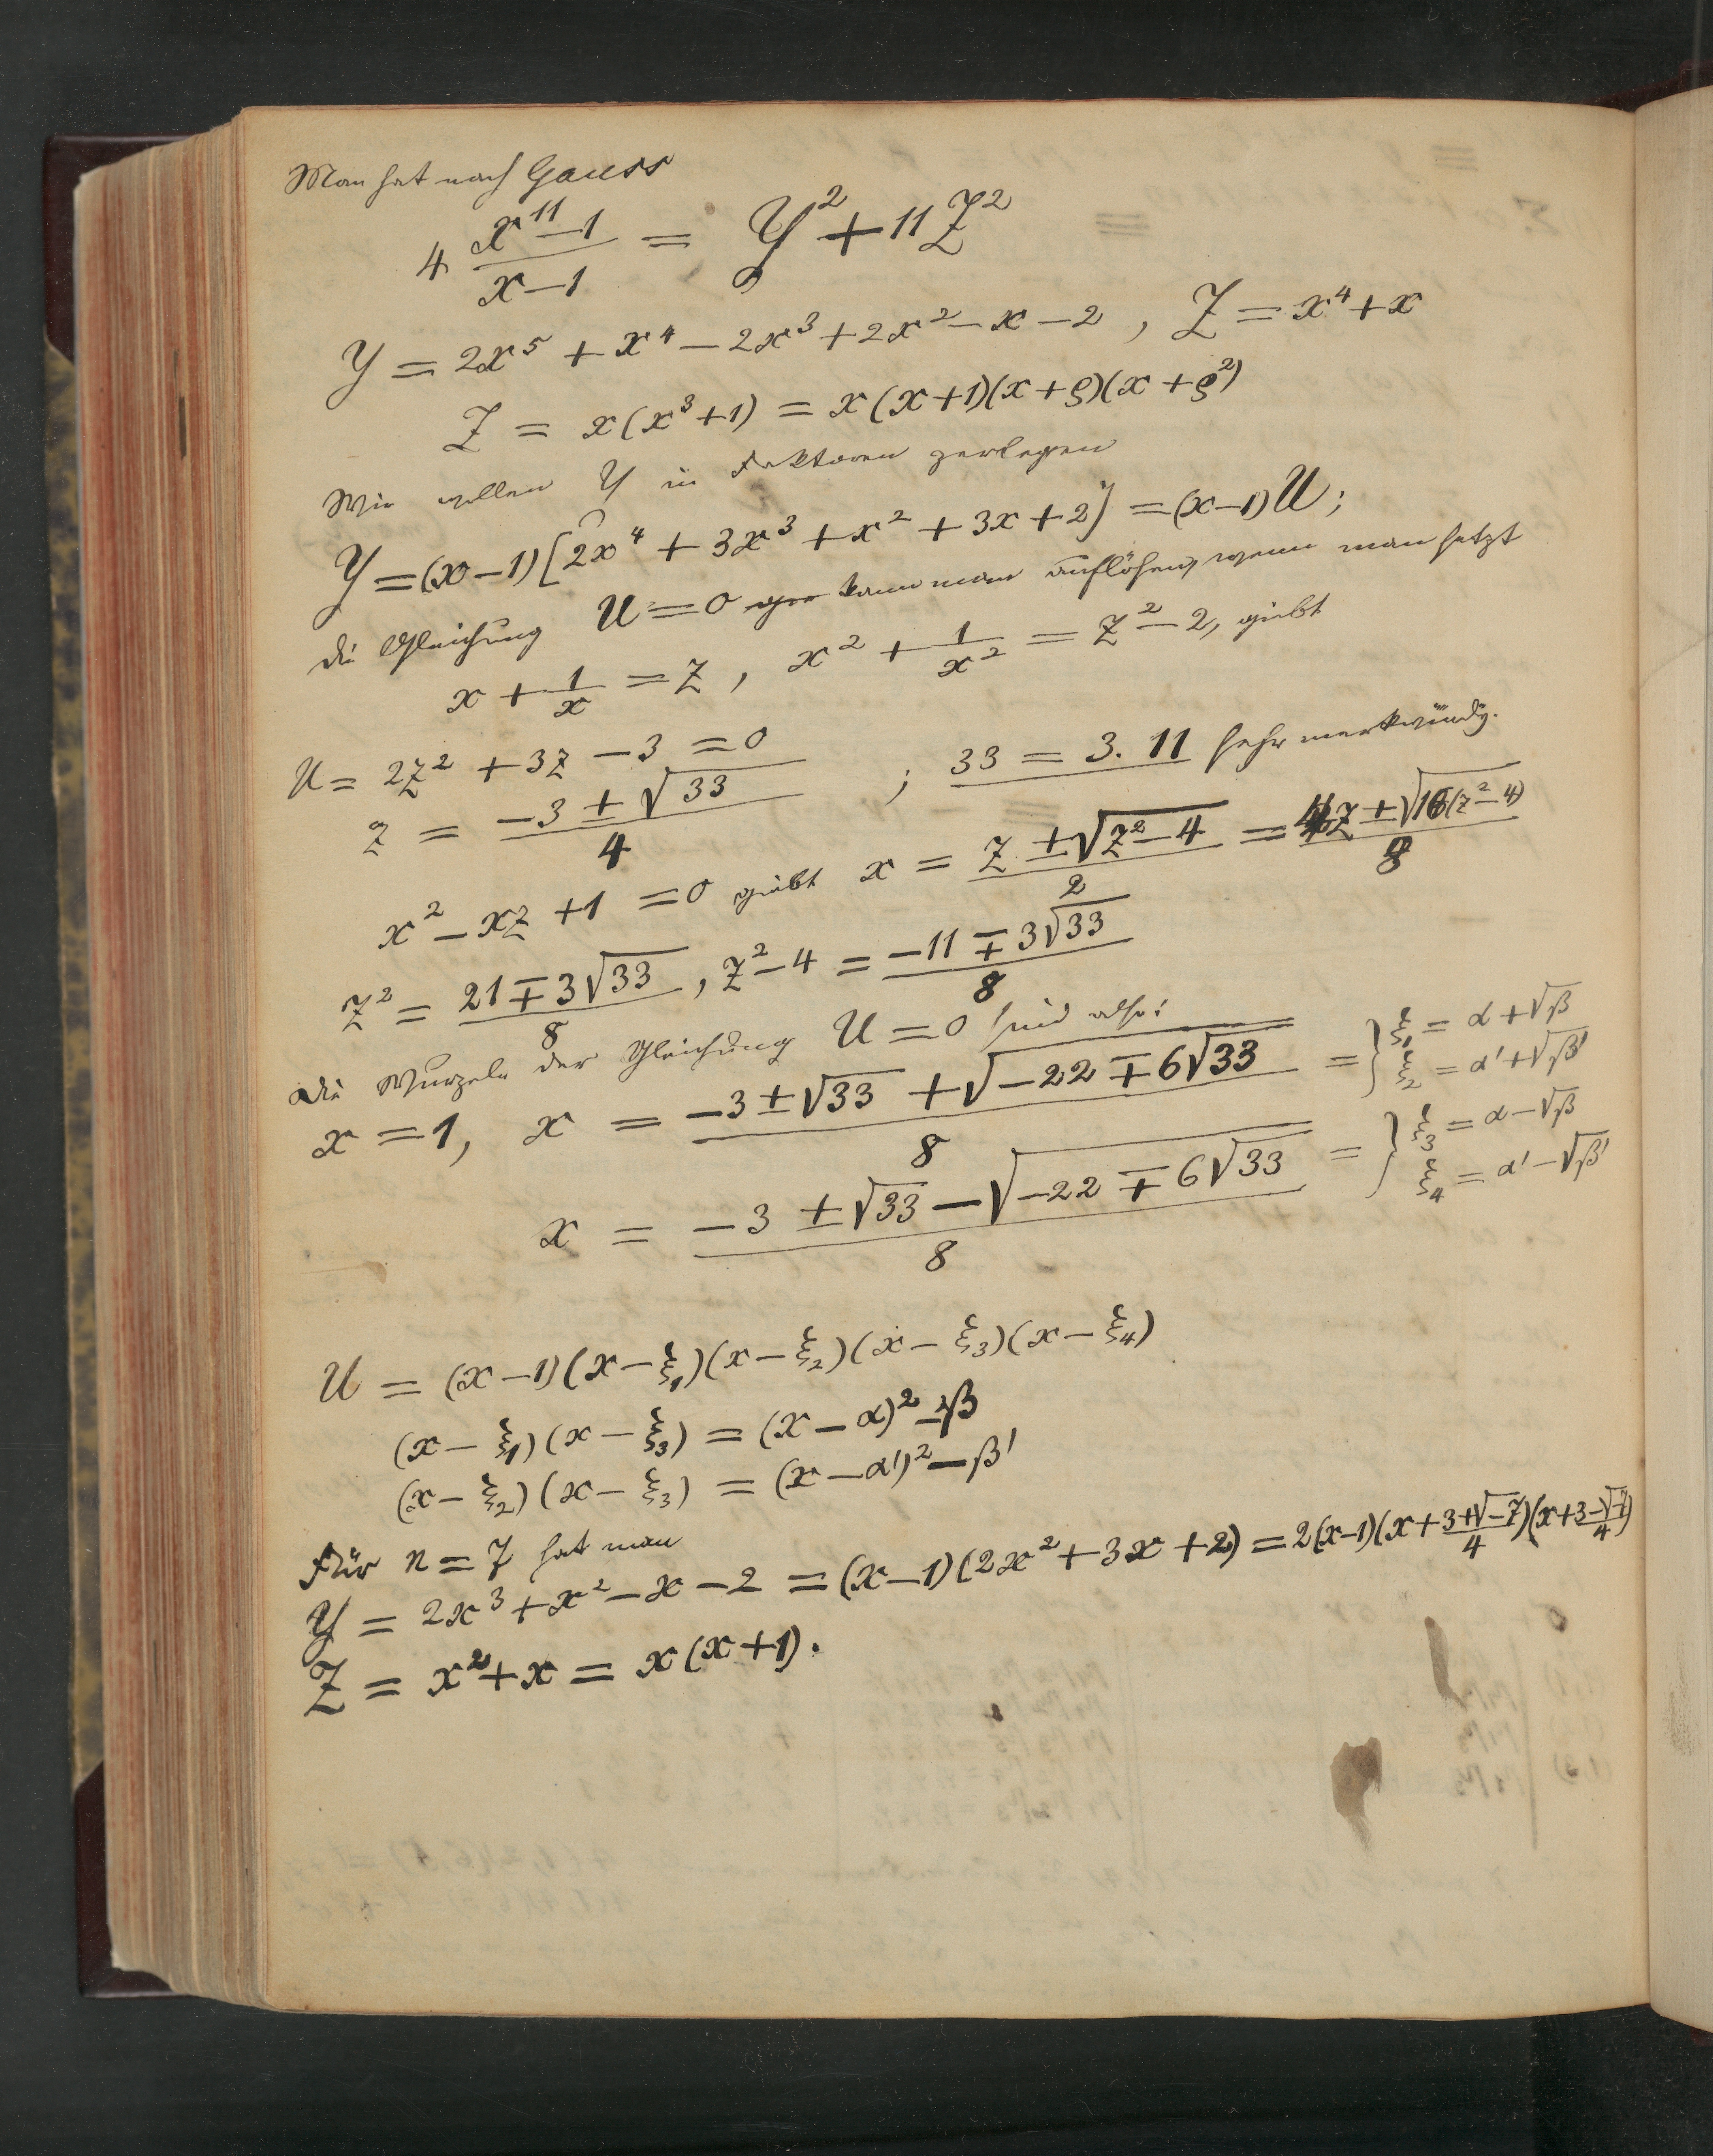 Man hat nach Gauss
4 (x^11 − 1)/(x − 1) = Y^2 + 11 Z^2
Y = 2x^5 + x^4 − 2x^3 + 2x^2 − x − 2, Z = x^4 + x
Z = x(x^3+1) = x(x+1)(x+ρ)(x+ρ^2)
Wir wollen Y in Faktoren zerlegen
Y = (x−1)[2x^4 + 3x^3 + x^2 + 3x + 2] = (x−1)U;
die Gleichung U = 0 kann man auflösen, wenn man setzt
x + 1/x = z, x^2 + 1/x^2 = z^2 − 2, giebt
U = 2z^2 + 3z − 3 = 0
z = (−3 ± √33)/4 ; 33 = 3. 11 sehr merkwürdig.
x^2 − xz + 1 = 0 giebt x = (z ± √(z^2−4))/2 = (4z ± √(16(z^2−4)))/8
z^2 = (21 ∓ 3√33)/8, z^2−4 = (−11 ∓ 3√33)/8
Die Wurzeln der Gleichung U = 0 sind also:
x = 1, x = (−3 ± √33 + √(−22 ∓ 6√33))/8 = } ξ1 = α + √β
ξ2 = α' + √β'
x = (−3 ± √33 − √(−22 ∓ 6√33))/8 = } ξ3 = α − √β
ξ4 = α' − √β'
U = (x−1)(x−ξ1)(x−ξ2)(x−ξ3)(x−ξ4)
(x−ξ1)(x−ξ3) = (x−α)^2 − β
(x−ξ2)(x−ξ3) = (x−α')^2 − β'
Für n = 7 hat man
Y = 2x^3 + x^2 − x − 2 = (x−1)(2x^2 + 3x + 2) = 2(x−1)(x + (3+√−7)/4)(x + (3−√−7)/4)
Z = x^2 + x = x(x+1).